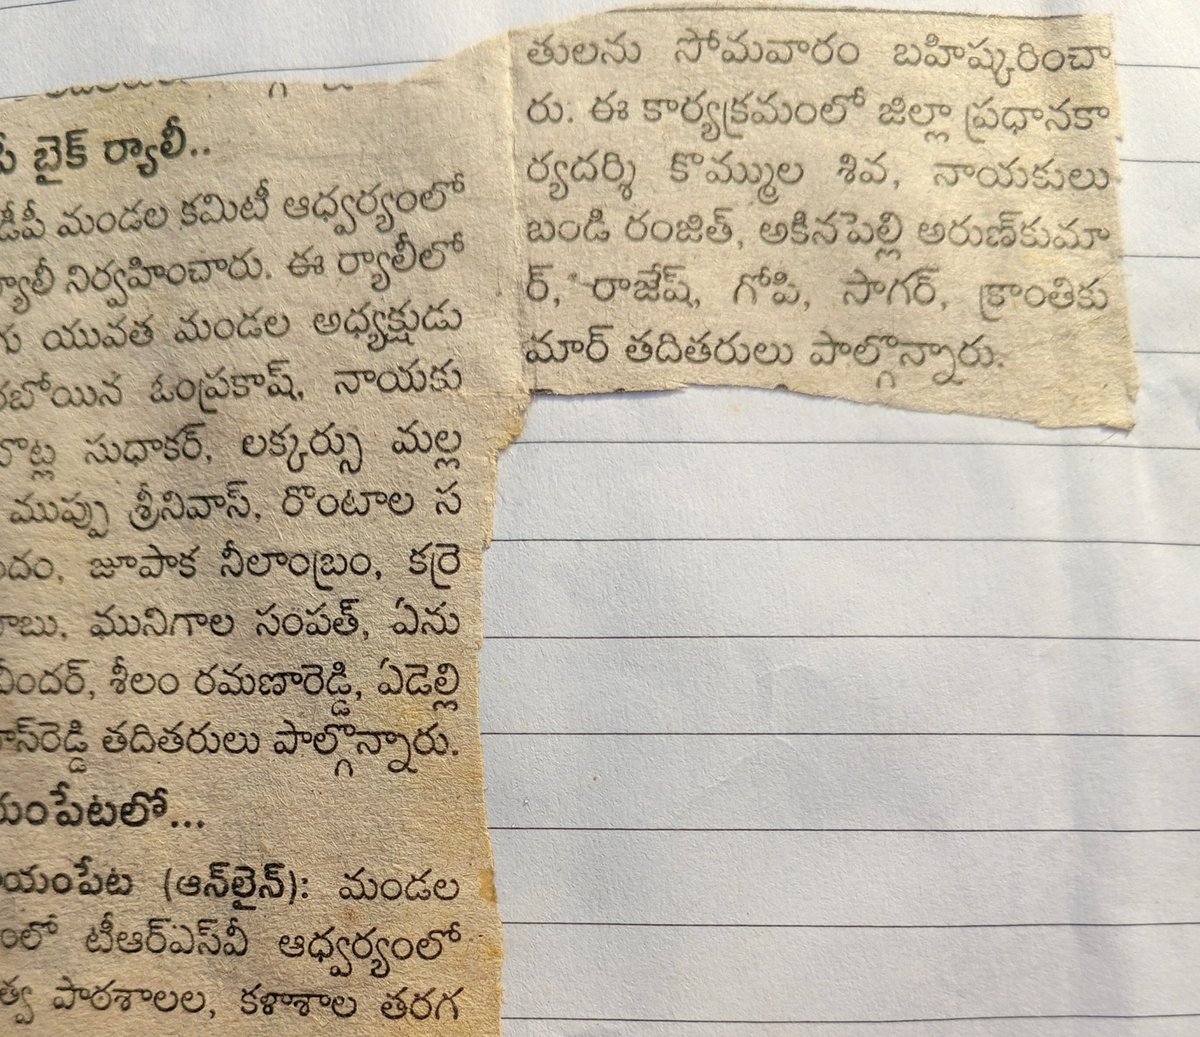 బైక్ ర్యాలీ..
మండల కమిటీ ఆధ్వర్యంలో
నిర్వహించారు. ఈ ర్యాలీలో
యువత మండల అధ్యక్షుడు
ఓంప్రకాష్, నాయకు
సుధాకర్, లక్కర్సు మల్ల
ముప్పు శ్రీనివాస్, రొంటాల స
జూపాక నీలాంబ్రం, కర్రె
మునిగాల సంపత్, ఏను
శీలం రమణారెడ్డి, ఏడెల్లి
తదితరులు పాల్గొన్నారు.
(ఆన్‌లైన్): మండల
టీఆర్ఎస్‌వీ ఆధ్వర్యంలో
పాఠశాలల, కళాశాల తరగ
తులను సోమవారం బహిష్కరించా
రు. ఈ కార్యక్రమంలో జిల్లా ప్రధానకా
ర్యదర్శి కొమ్ముల శివ, నాయకులు
బండి రంజిత్, అకినపెల్లి అరుణ్‌కుమా
ర్, రాజేష్, గోపి, సాగర్, క్రాంతికు
మార్ తదితరులు పాల్గొన్నారు.